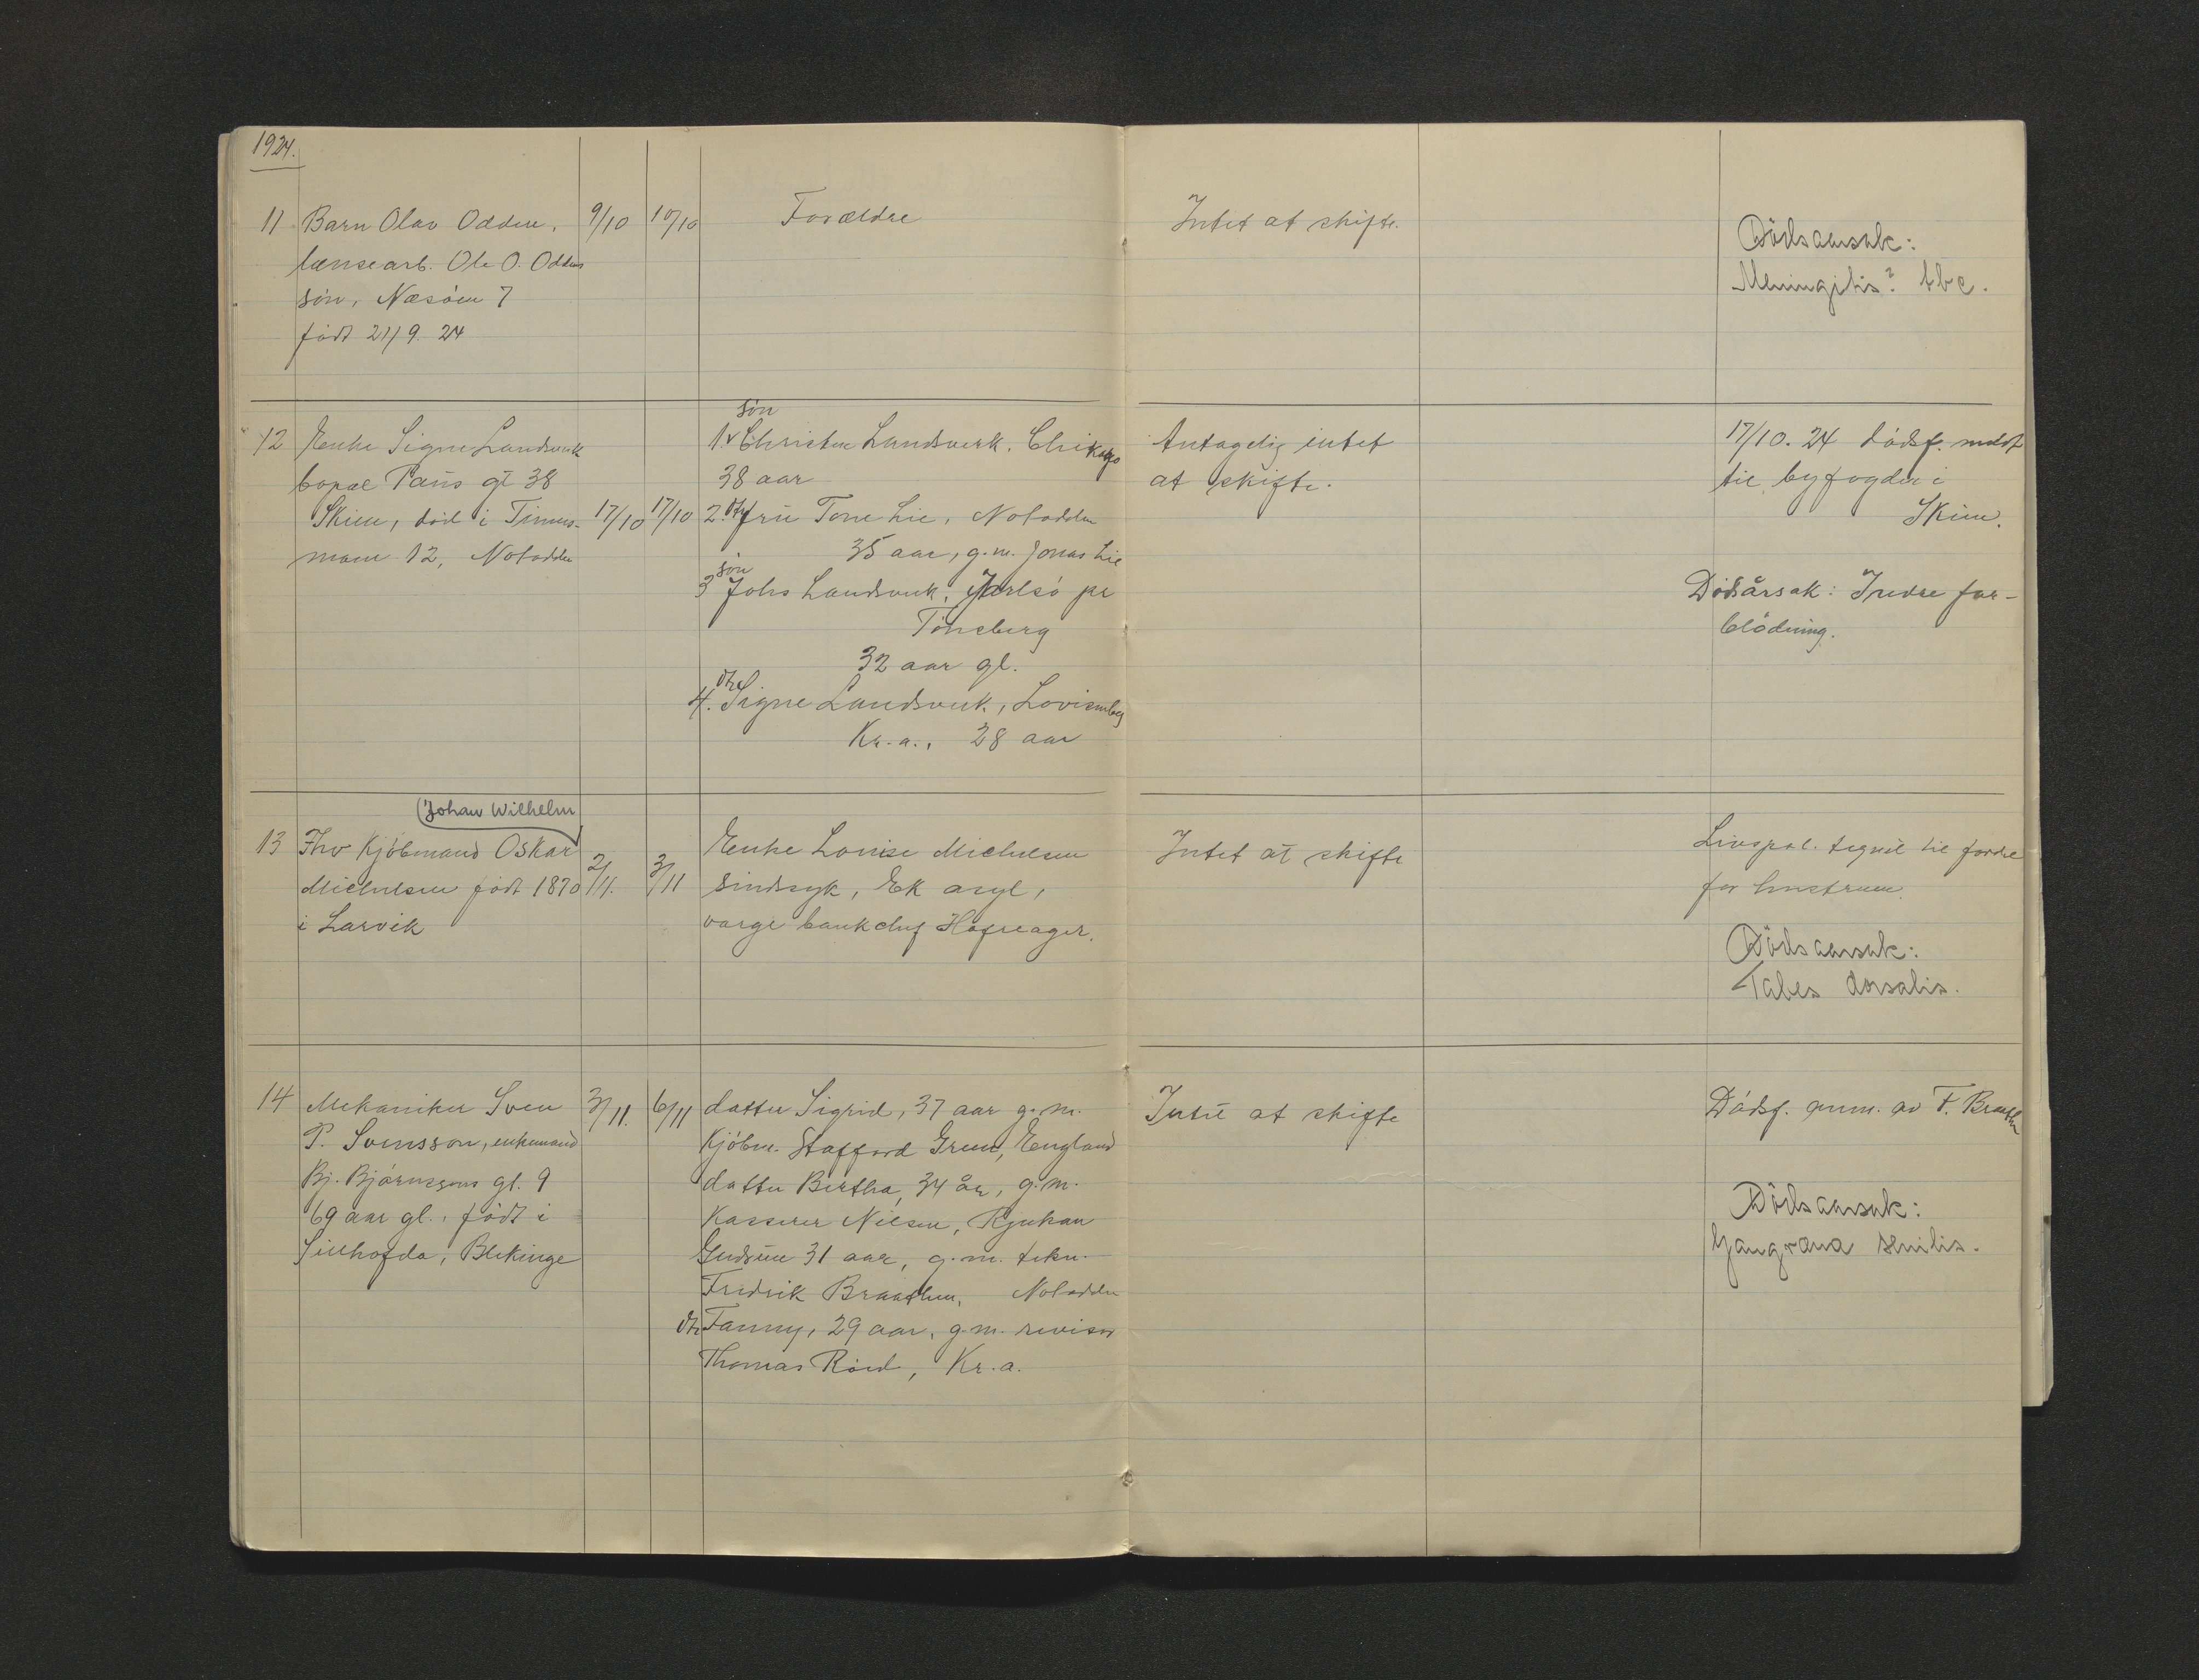 1924.
11 Barn Olav Odden, 9/10 10/10 Forældre Intet at skifte.
lænsearb. Ole O. Oddens
søn, Næsøen 7
født 21/9 24
Dödsaarsak:
Meningitis? tbc.
12 Enke Signe Landsverk
bopæl Paus gt 38
Skien, död i Tinnes-
moen 12, Notodden
17/10 17/10
søn
1. Christen Landsverk, Chikago
38 aar
2. dtr fru Tone Lie, Notodden
35 aar, g.m. Jonas Lie
søn
3 Johs Landsverk, Jarlsö pr
Tönsberg
32 aar gl.
dtr
4. Signe Landsverk, Lovisenberg
Kr.a., 28 aar
Antagelig intet
at skifte.
17/10. 24 dödsf. meldt
til byfogden i
Skien.
Dödsårsak: Indre for-
blödning.
(Johan Wilhelm
13 Fhv Kjöbmand Oskar
Michelsen født 1870
i Larvik
2/11. 3/11
Enke Louise Michelsen
sindssyk, Ek asyl,
værge bankchef
Intet at skifte
Livspol. tegnet til fordel
for hustruen.
Dödsaarsak:
Tabes dorsalis.
14 Mekaniker Sven
P. Svensson, enkemand
Bj. Björnssons gt. 9
69 aar gl., født i
Sillhofda, Blekinge
3/11. 6/11
datter Sigrid, 37 aar g.m.
Kjöbm. Stafford Green, England
datter Bertha, 34 år, g.m.
Kasserer Nilsen, Rjukan
Gudrun 31 aar, g.m. tekn.
Fredrik Braathen, Notodden
dtr Fanny, 29 aar, g.m. revisor
Thomas Röed, Kr.a.
Intet at skifte
Dödsf. anm. av F. Braathen
Dödsaarsak:
Gangræna senilis.